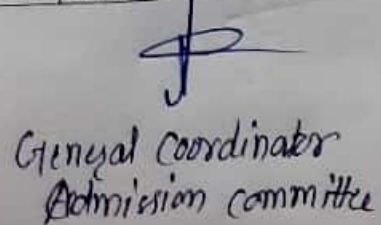 General Coordinator
Admission Committee